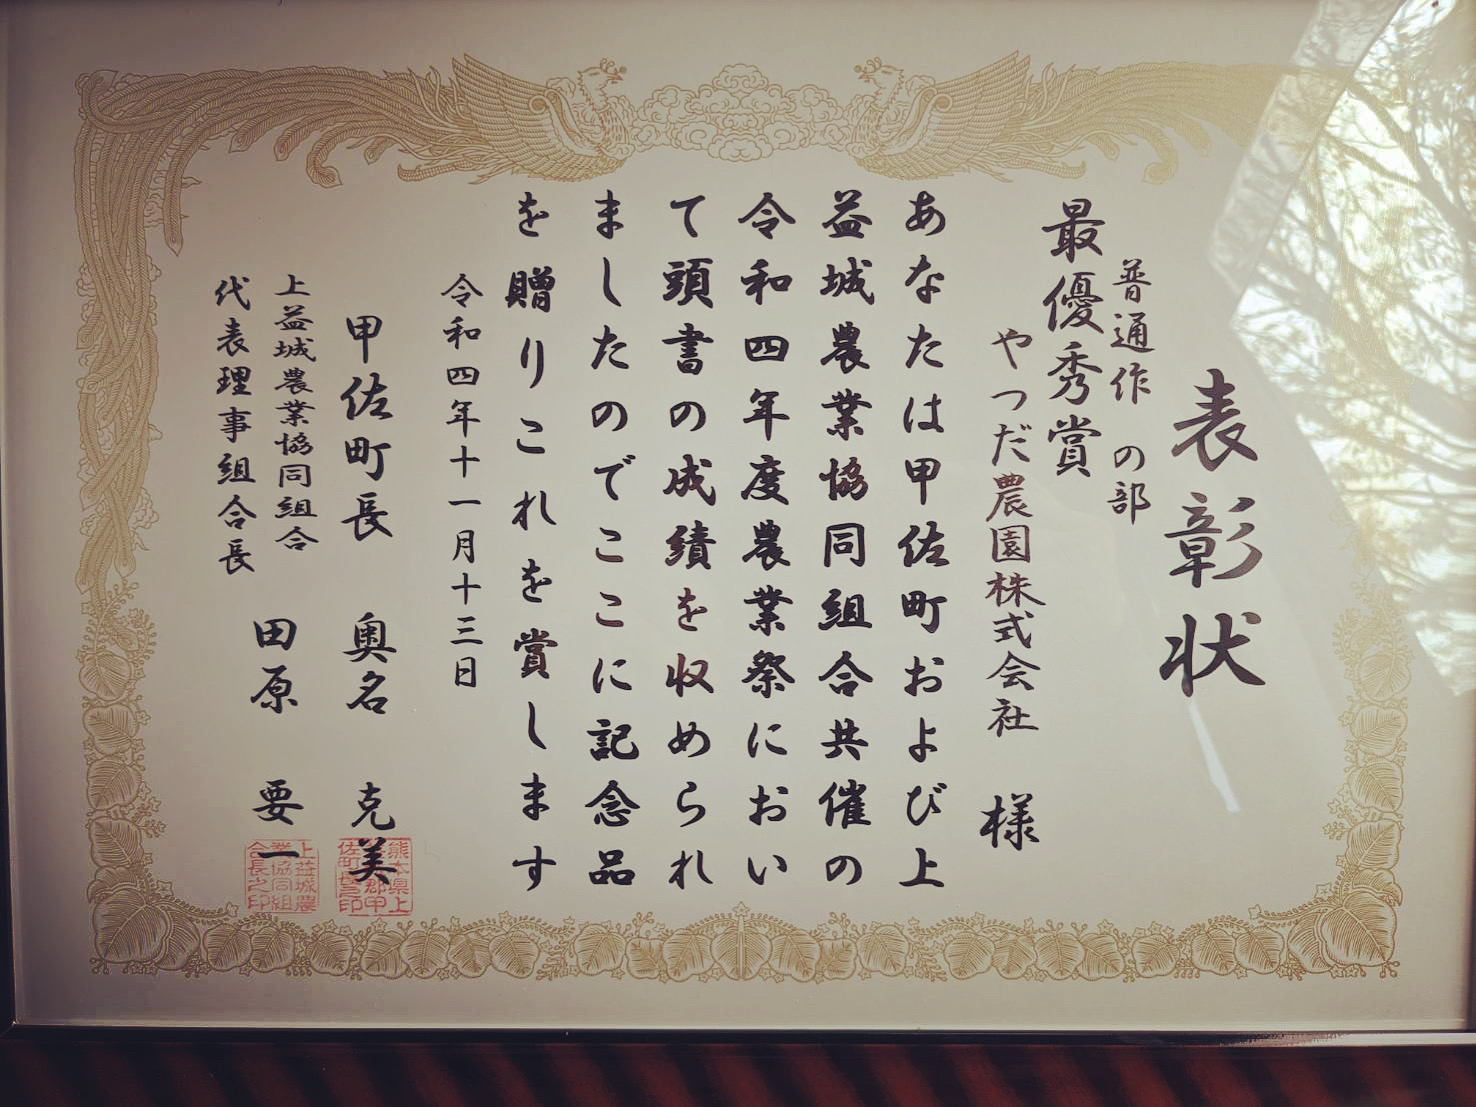 表彰状
普通作 の部
最優秀賞
やつだ農園株式会社 様
あなたは甲佐町および上
益城農業協同組合共催の
令和四年度農業祭におい
て頭書の成績を収められ
ましたのでここに記念品
を贈りこれを賞します
令和四年十一月十三日
甲佐町長 奥名 克美
上益城農業協同組合
代表理事組合長 田原 要一